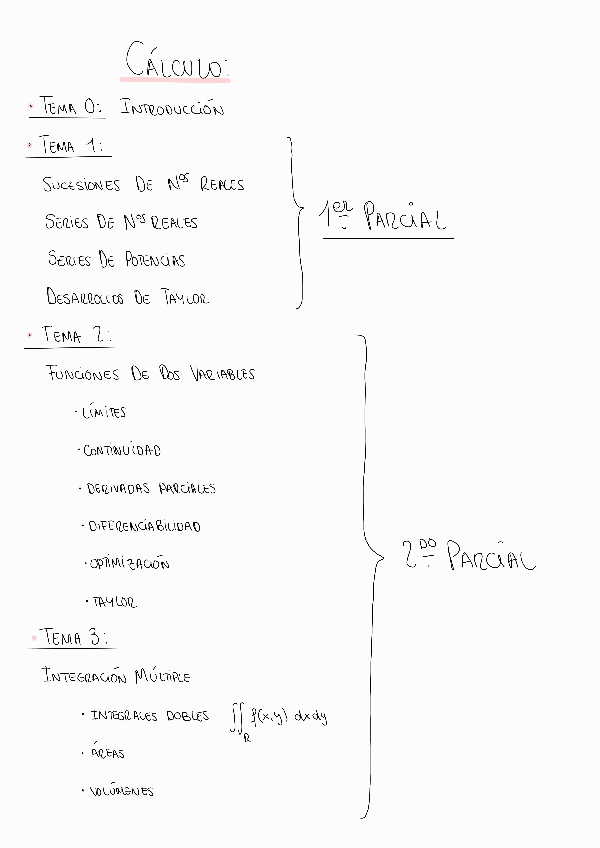 CÁLCULO:
• TEMA 0: INTRODUCCIÓN
• TEMA 1:
SUCESIONES DE Nºˢ REALES
SERIES DE Nºˢ REALES
SERIES DE POTENCIAS
DESARROLLOS DE TAYLOR
1ᵉʳ PARCIAL
• TEMA 2:
FUNCIONES DE DOS VARIABLES
· LÍMITES
· CONTINUIDAD
· DERIVADAS PARCIALES
· DIFERENCIABILIDAD
· OPTIMIZACIÓN
· TAYLOR
2ᴰᴼ PARCIAL
• TEMA 3:
INTEGRACIÓN MÚLTIPLE
· INTEGRALES DOBLES ∬_R f(x,y) dxdy
· ÁREAS
· VOLÚMENES